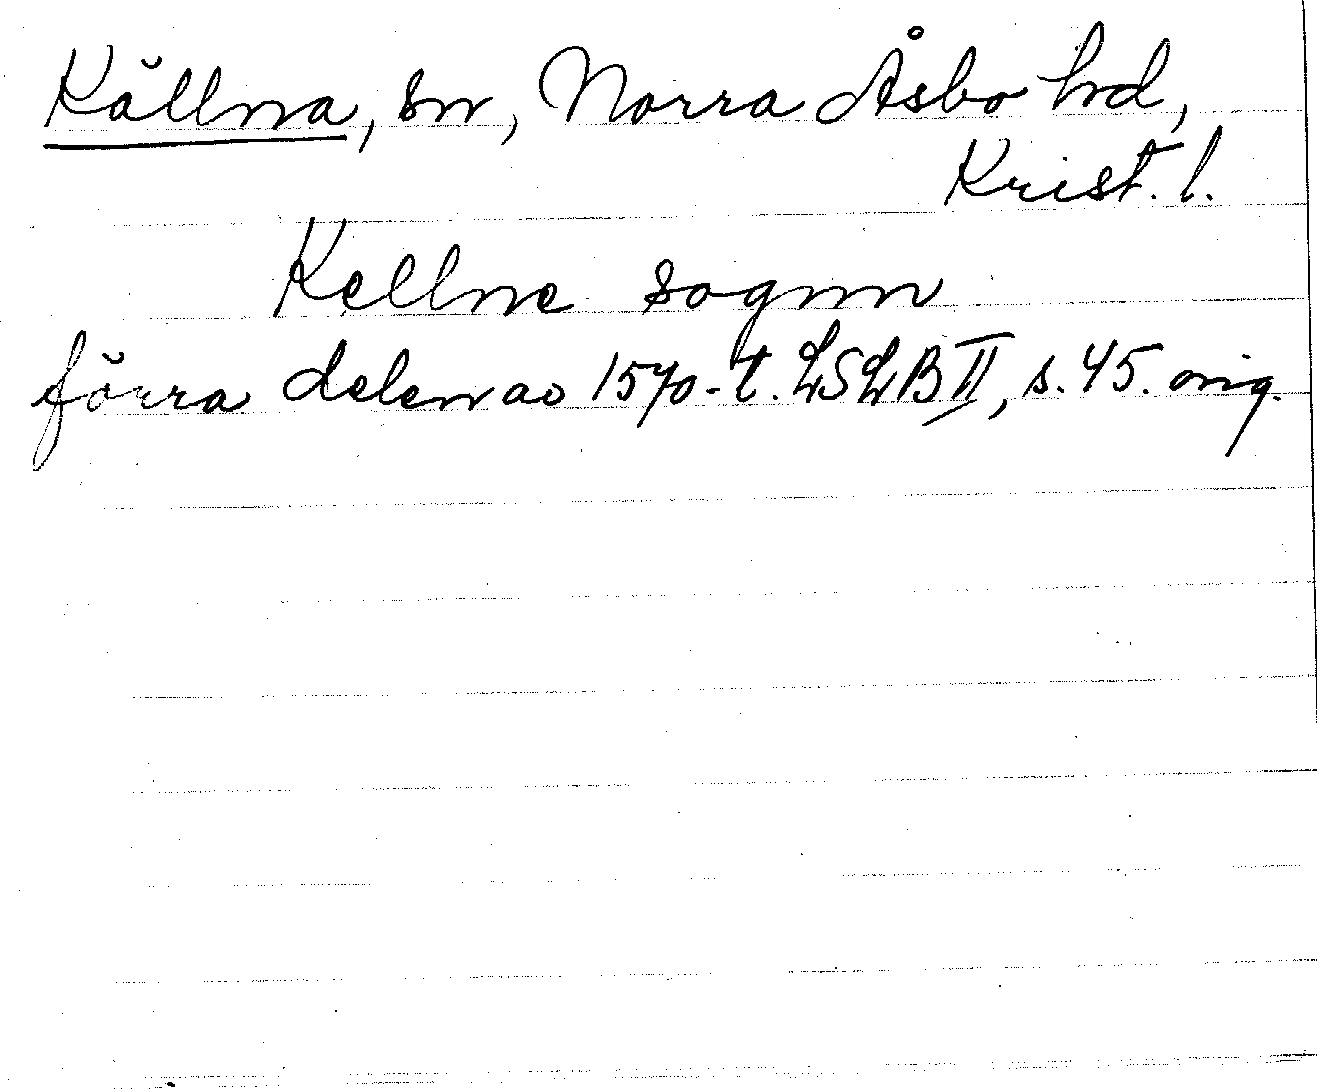 Källna, sn, Norra Åsbo hd,
Krist. l.
Kellne sognn
förra delen av 1570-t. LSLB II, s. 45. orig.